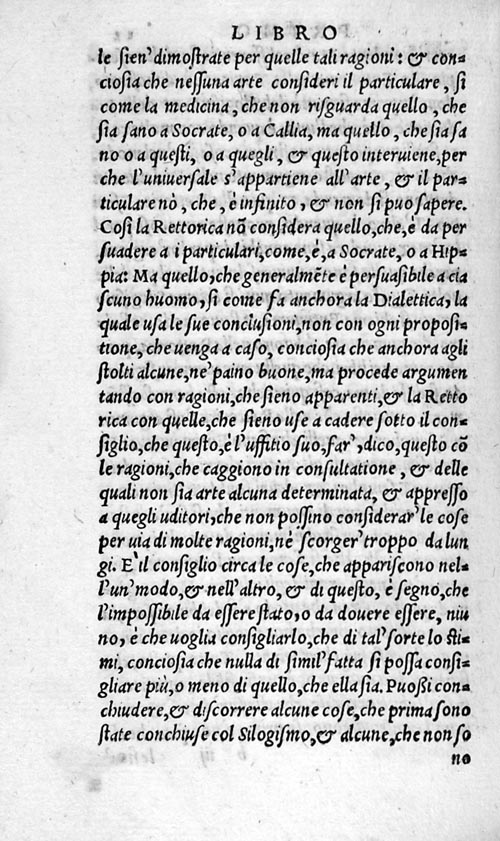 LIBRO
le sien' dimostrate per quelle tali ragioni: & con-
ciosia che nessuna arte consideri il particulare, si
come la medicina, che non risguarda quello, che
sia sano a Socrate, o a Callia, ma quello, che sia sa
no o a questi, o a quegli, & questo interviene, per
che l'universale s'appartiene all'arte, & il par-
ticulare nò, che, è infinito, & non si puo sapere.
Cosi la Rettorica nõ considera quello, che, è da per
suadere a i particulari, come, è, a Socrate, o a Hip-
pia: Ma quello, che generalmẽte è persuasibile a cia
scuno huomo, si come fa anchora la Dialettica, la
quale usa le sue conclusioni, non con ogni proposi-
tione, che venga a caso, conciosia che anchora agli
stolti alcune, ne' paino buone, ma procede argumen
tando con ragioni, che sieno apparenti, & la Retto
rica con quelle, che sieno use a cadere sotto il con-
siglio, che questo, è l'uffitio suo, far', dico, questo cõ
le ragioni, che caggiono in consultatione, & delle
quali non sia arte alcuna determinata, & appresso
a quegli uditori, che non possino considerar' le cose
per via di molte ragioni, nè scorger' troppo da lun
gi. E' il consiglio circa le cose, che appariscono nel-
l'un' modo, & nell'altro, & di questo, è segno, che
l'impossibile da essere stato, o da dovere essere, niu
no, è che voglia consigliarlo, che di tal' sorte lo sti-
mi, conciosia che nulla di simil' fatta si possa consi-
gliare più, o meno di quello, che ella sia. Puossi con-
chiudere, & discorrere alcune cose, che prima sono
state conchiuse col Silogismo, & alcune, che non so
no